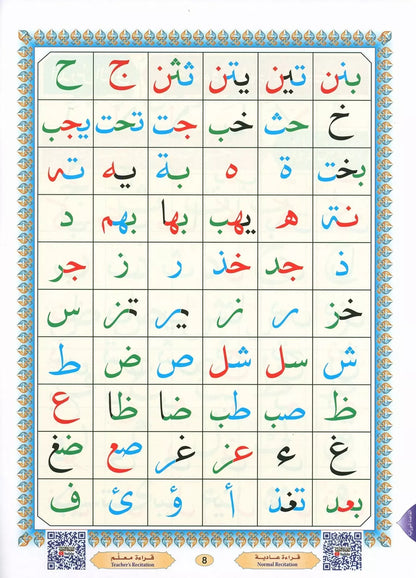 بنن تين يتن تثن ج ح
خ حث خب جت تحت يجب
بخت ة ه بة يه ته
نة هـ يهب بها بهم د
ذ جد خذ ر ز جر
خز ر ز ير تز س
ش سل شل ص ض ط
ظ صب طب ضا ظا ع
غ ء عز غر صع ضغ
بعد تغذ أ ؤ ئ ف
قراءة معلم 8 قراءة عادية
Teacher's Recitation Normal Recitation